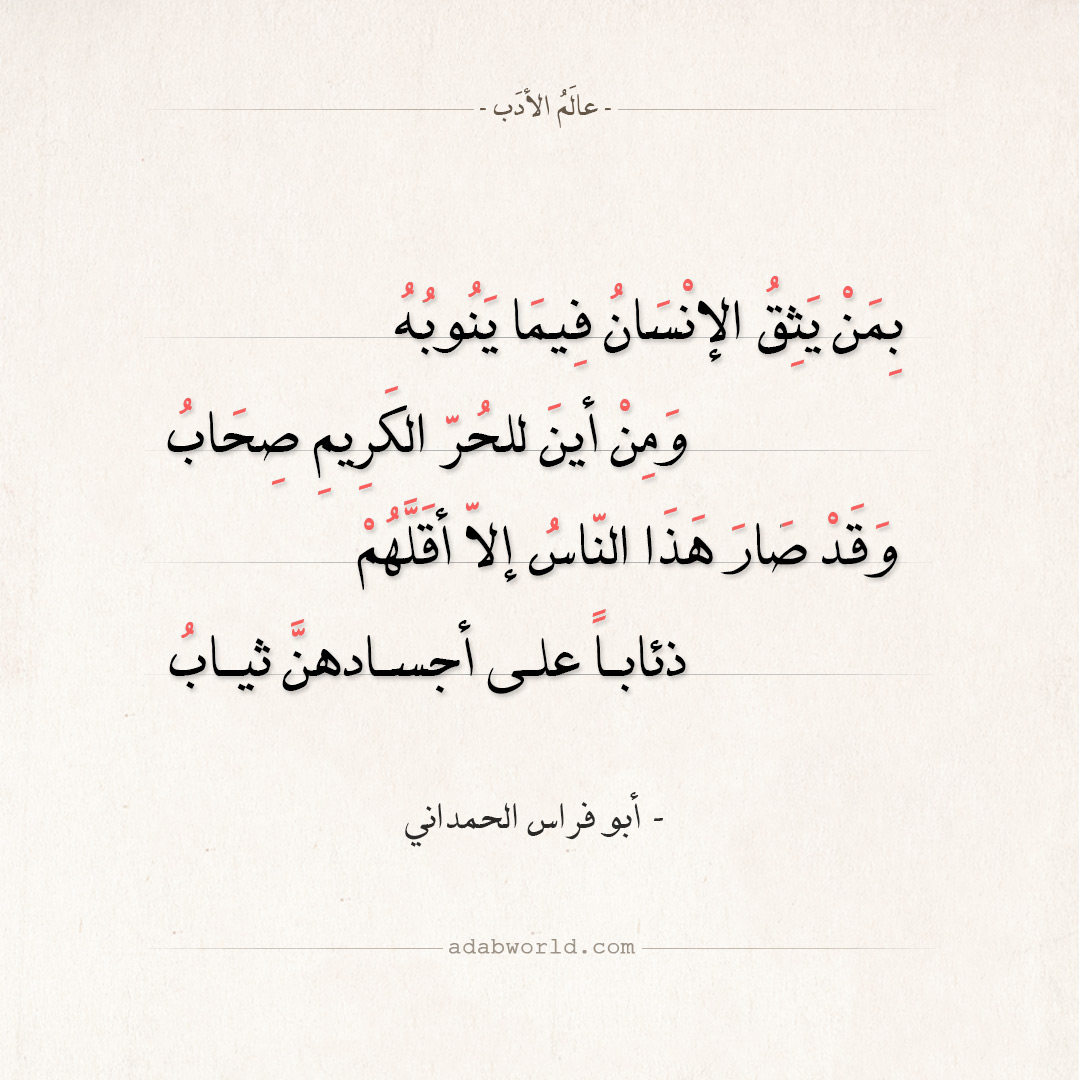 - عالَمُ الأدَب -
بِمَنْ يَثِقُ الإنْسَانُ فِيمَا يَنُوبُهُ
وَمِنْ أينَ للحُرّ الكَرِيمِ صِحَابُ
وَقَدْ صَارَ هَذَا النّاسُ إلاّ أقَلَّهُمْ
ذئابـاً علـى أجسـادهنَّ ثيـابُ
- أبو فراس الحمداني
adabworld.com